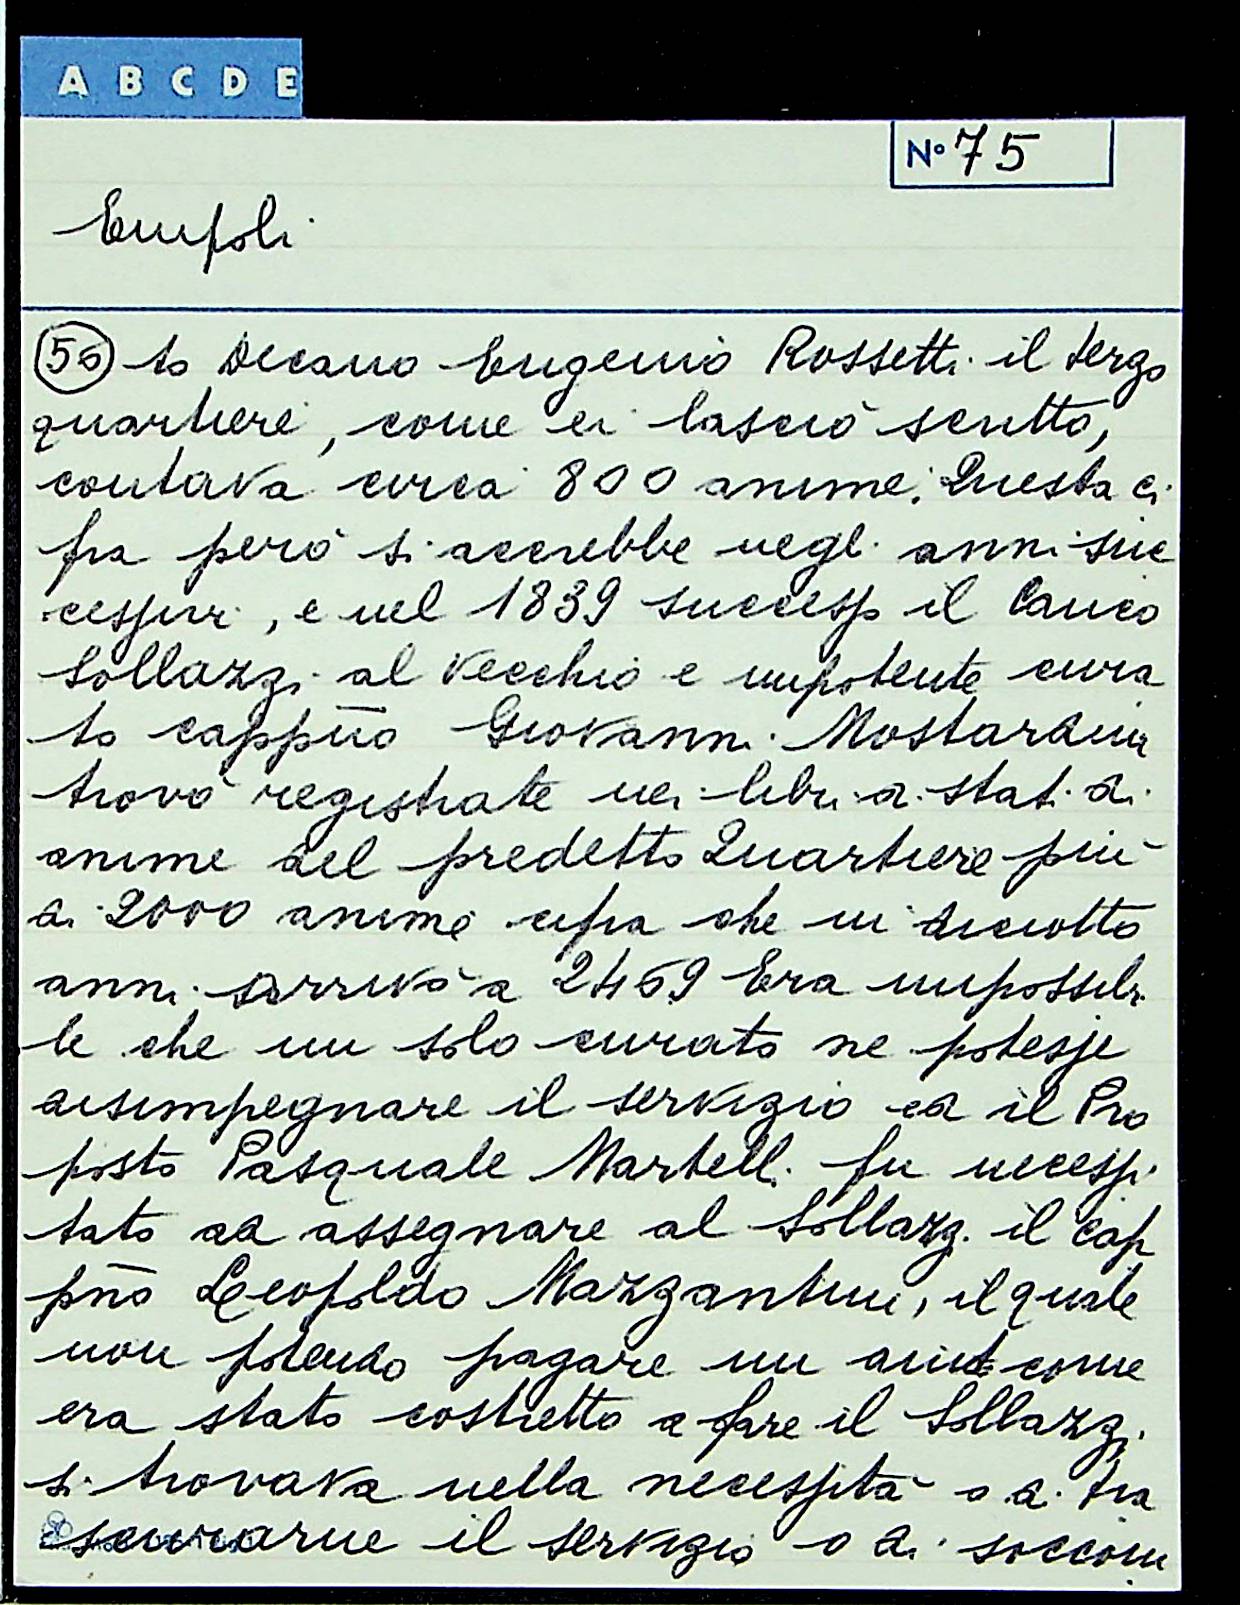 A B C D E
Nº 75
Empoli
56 to Decano Eugenio Rossetti il terzo
quartiere, come ei lasciò scritto,
contava circa 800 anime. Questa ci
fra però si accrebbe negli anni suc
cessivi, e nel 1839 successo il Canco
Sollazzi al vecchio e impotente cura
to cappño Giovanni Mostardini
trovò registrate nei libri di stati di
anime del predetto Quartiere più
di 2000 anime cifra che in diciotto
anni arrivò a 2469 Era impossibi
le che un solo curato ne potesse
disimpegnare il servizio ed il Pro
posto Pasquale Martelli fu necessi
tato ad assegnare al Sollazzi il cap
pño Leopoldo Mazzantini, il quale
non potendo pagare un aiuto come
era stato costretto a fare il Sollazzi
si trovava nella necessità o di tra
scurarne il servizio o di soccom